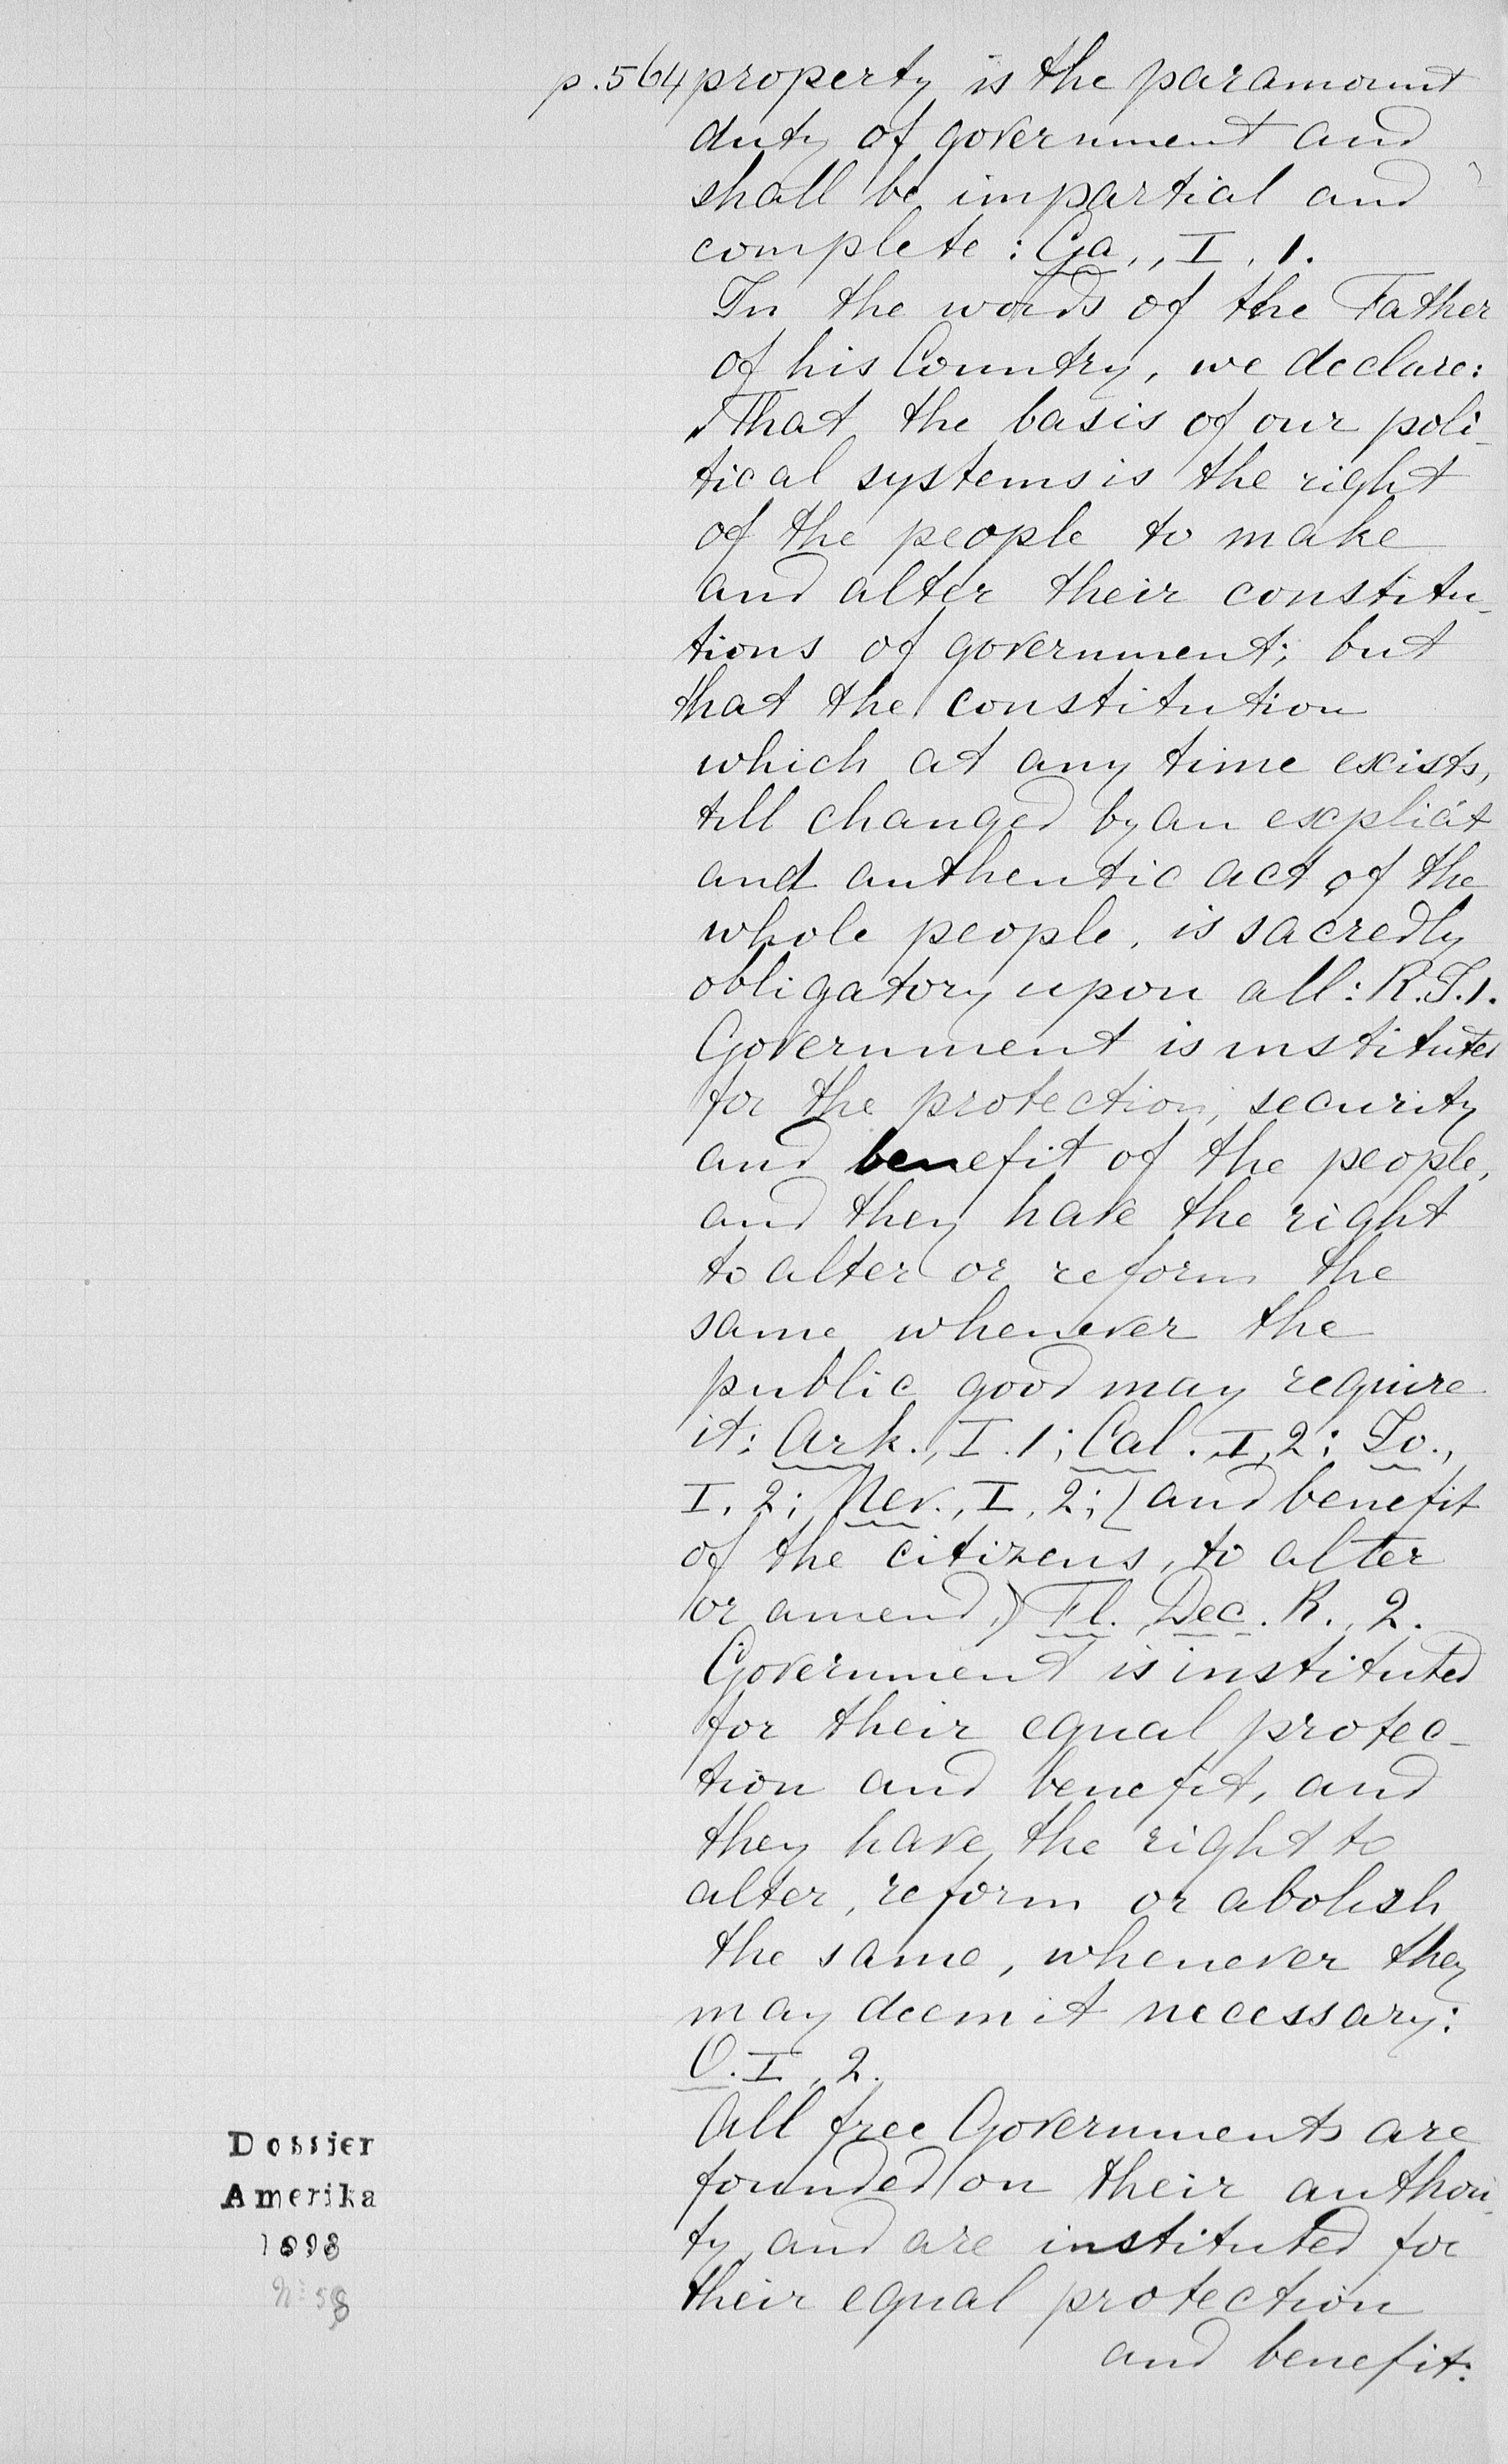 p. 564 property is the paramount
duty of government and
shall be impartial and
complete : Ga., I, 1.
In the words of the Father
of his Country, we declare:
That the basis of our poli-
tical systems is the right
of the people to make
and alter their constitu-
tions of government; but
that the constitution
which at any time exists,
till changed by an explicit
and authentic act of the
whole people, is sacredly
obligatory upon all: R.I.1.
Government is instituted
for the protection, security
and benefit of the people,
and they have the right
to alter or reform the
same whenever the
public good may require
it: Ark., I. 1; Cal. I, 2; Io.,
I, 2; Nev., I, 2; (and benefit
of the citizens, to alter
or amend,) Fl., Dec. R., 2.
Government is instituted
for their equal protec-
tion and benefit, and
they have the right to
alter, reform or abolish
the same, whenever they
may deem it necessary:
O. I, 2.
All free Governments are
founded on their authori-
ty and are instituted for
their equal protection
and benefit:
Dossier
Amerika
1898
No 58